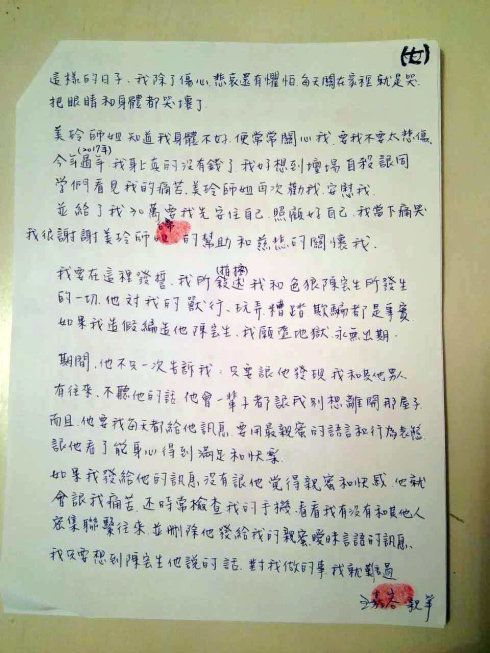 (七)
這樣的日子、我除了傷心、悲哀還有懼怕、每天關在家裡就是哭、
把眼睛和身體都哭壞了
美玲師姐知道我身體不好、便常常關心我、要我不要太悲傷、
(2017年)
今年過年、我身上真的沒有錢了、我好想到壇場自殺讓同
學們看見我的痛苦、美玲師姐再次勸我、安慰我、
並給了我30萬要我先安住自己、照顧好自己、我當下痛哭
我很謝謝美玲師姐的幫助和慈悲的關懷我、
我要在這裡發誓、我所敘述(指摘)我和色狼陳宏生所發生
的一切、他對我的獸行、玩弄糟踏欺騙都是事實
如果我造假編造他陳宏生、我願墮地獄、永無出期、
期間、他不只一次告訴我、只要讓他發現我和其他男人
有往來、不聽他的話、他會一輩子都讓我別想離開那屋子
而且、他要我每天都給他訊息、要用最親蜜的語言和行為表態
讓他看了能身心得到滿足和快樂、
如果我發給他的訊息、沒有讓他覺得親蜜和快感、他就
會讓我痛苦、还時常檢查我的手機、看看我有沒有和其他人
密集聯繫往來、並刪除他發給我的親蜜、曖昧言語的訊息、
我只要想到陳宏生他說的話、對我做的事我就難過
親筆